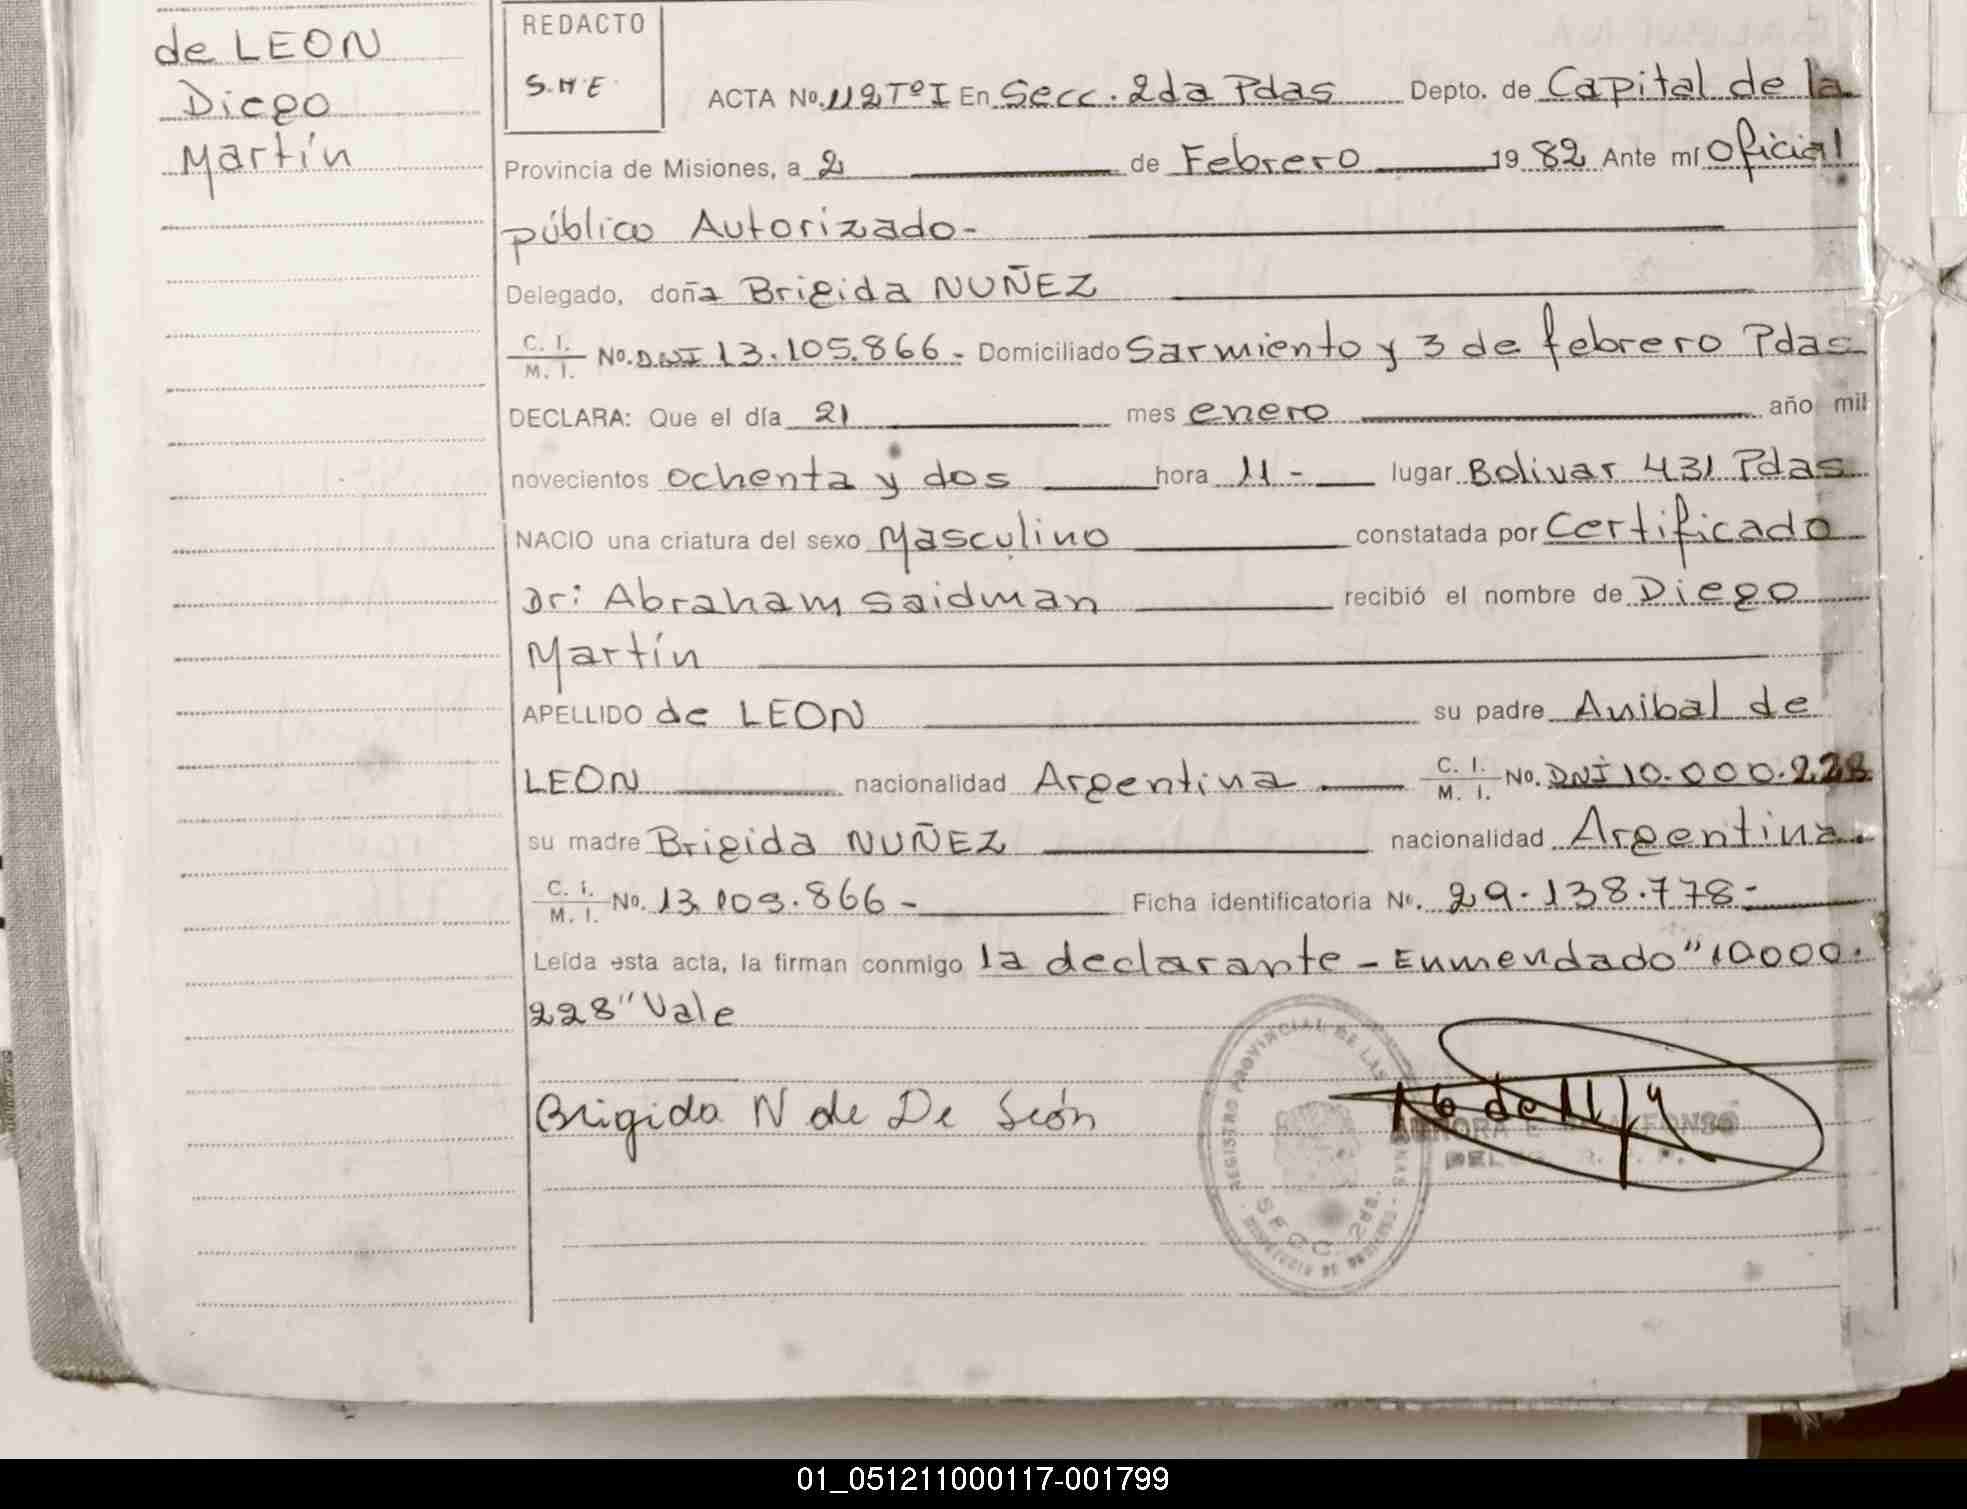 de LEON
Diego
Martín
REDACTO
S.H.E.
ACTA No. 112 Tº I En Secc. 2da Pdas Depto. de Capital de la
Provincia de Misiones, a 2 de Febrero 19 82 Ante mí Oficial
público Autorizado-
Delegado, doña Brigida NUÑEZ
C. I. / M. I. No. DNI 13.105.866- Domiciliado Sarmiento y 3 de febrero Pdas
DECLARA: Que el día 21 mes enero año mil
novecientos ochenta y dos hora 11- lugar Bolivar 431 Pdas
NACIO una criatura del sexo Masculino constatada por Certificado
Dr: Abraham Saidman recibió el nombre de Diego
Martín
APELLIDO de LEON su padre Anibal de
LEON nacionalidad Argentina C. I. / M. I. No. DNI 10.000.228
su madre Brigida NUÑEZ nacionalidad Argentina.
C. I. / M. I. No. 13.105.866- Ficha identificatoria No. 29.138.778-
Leída esta acta, la firman conmigo la declarante - Enmendado "10000.
228" Vale
Brigida N de De León
REGISTRO PROVINCIAL DE LAS
SECC. 2da.
01_051211000117-001799